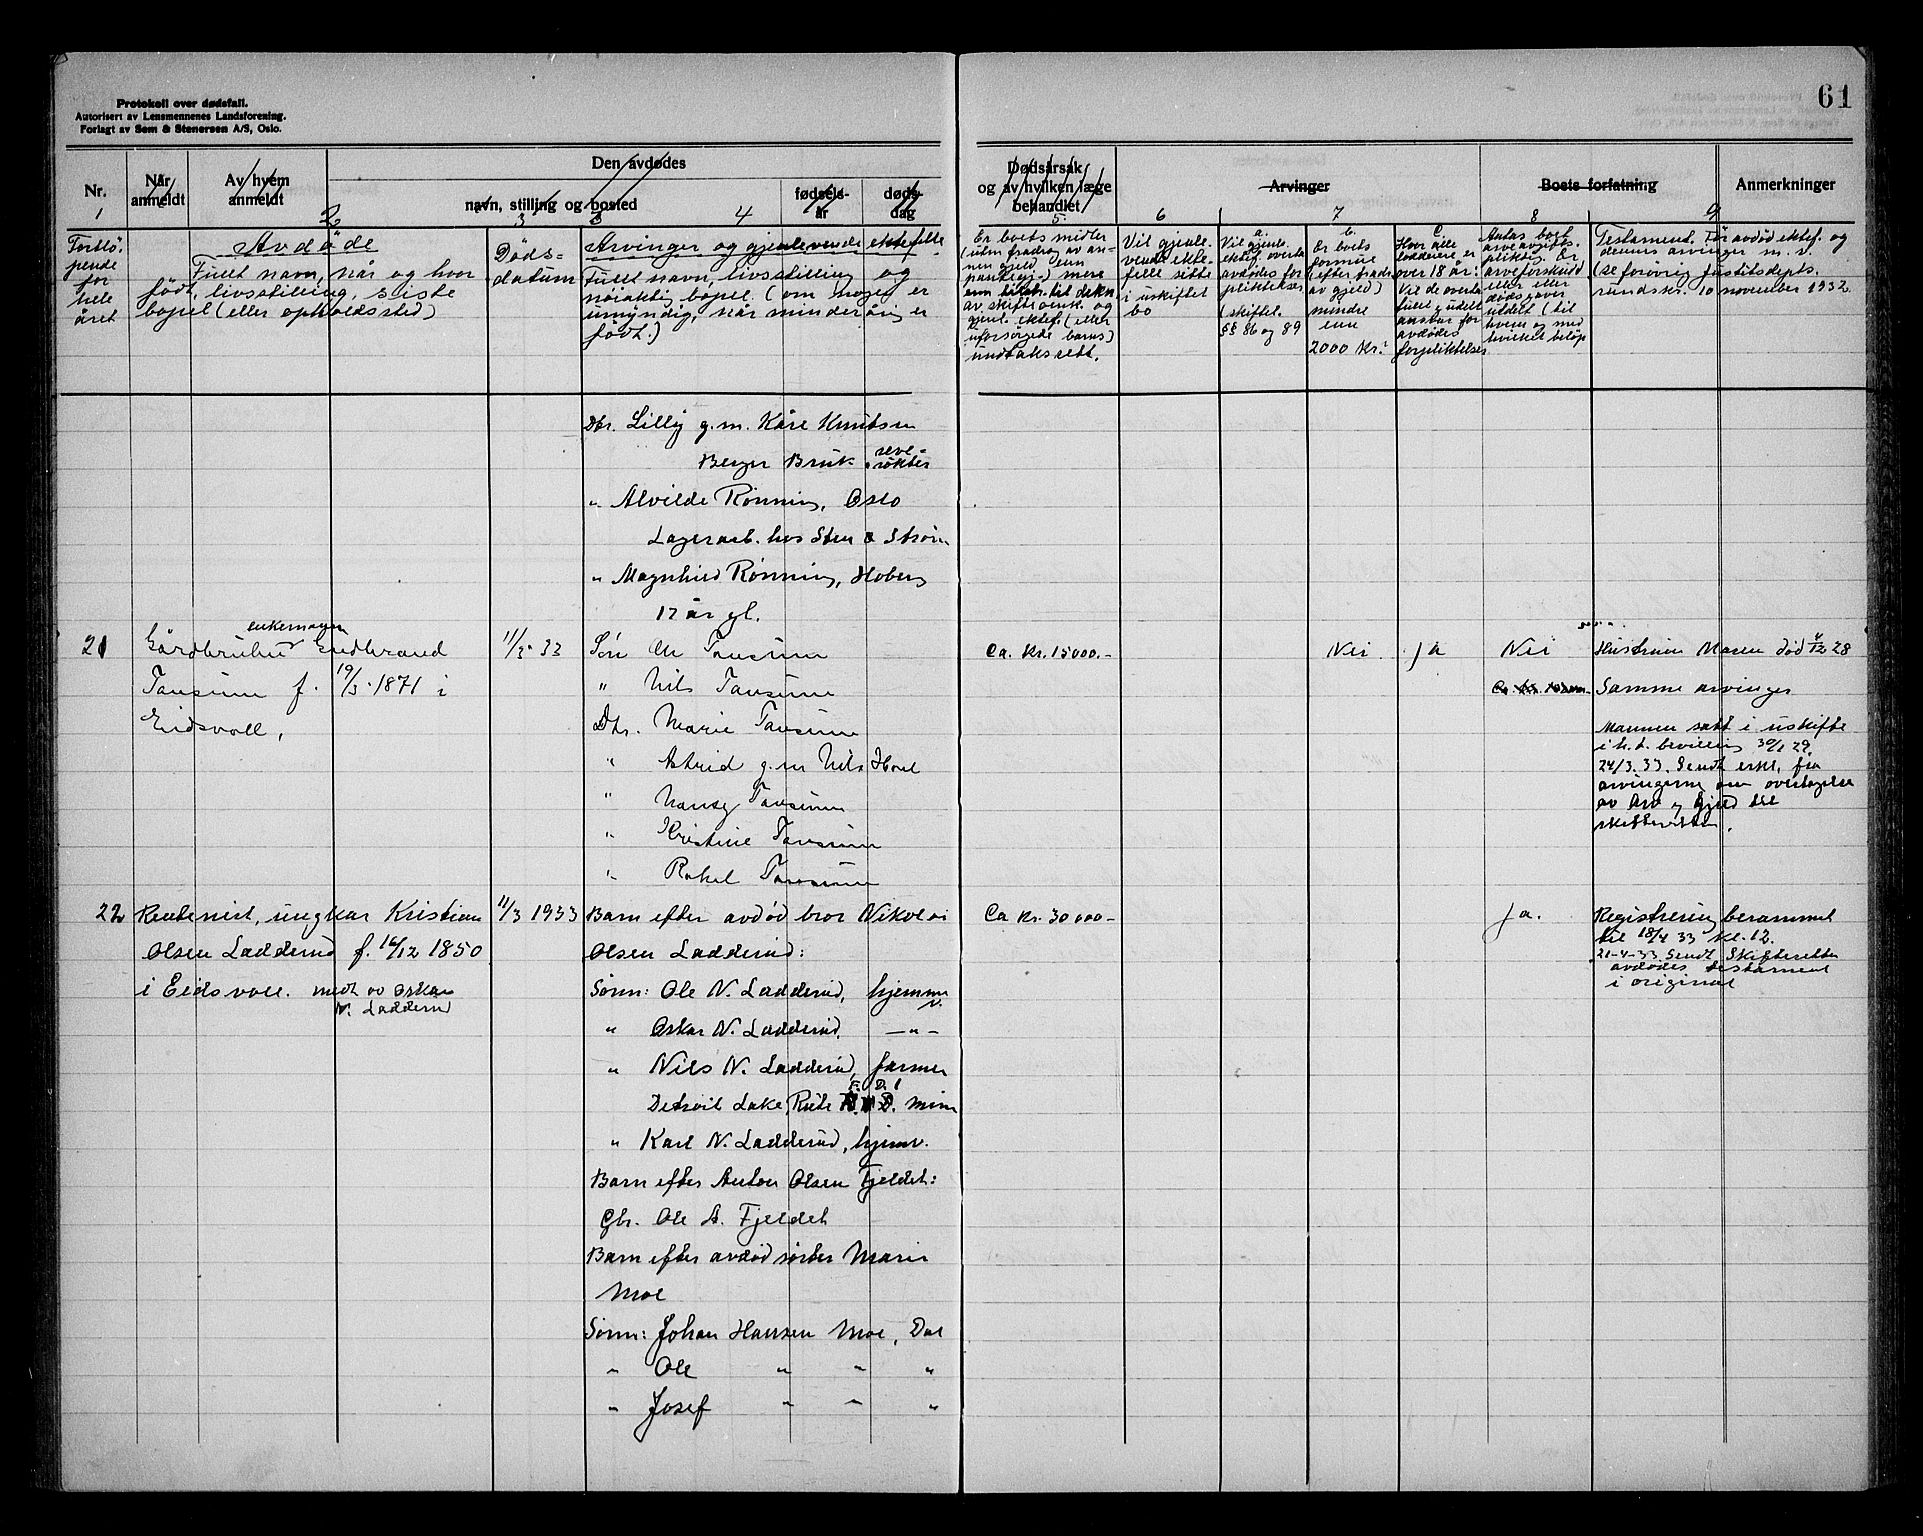 Protokoll over dødsfall.
Autorisert av Lensmennenes Landsforening.
Forlagt av Sem & Stenersen A/S, Oslo.
61
Nr.
Når anmeldt
Av hvem anmeldt
Den avdødes
navn, stilling og bosted
fødsels-år
døds-dag
Dødsårsak og av hvilken læge behandlet
Arvinger
Boets forfatning
Anmerkninger
1 2 3 4 5 6 7 8 9
Fortlø-
pende
for
hele
året
Avdøde
Fullt navn, når og hvor
født, livsstilling, siste
bopel (eller opholdssted)
Døds-
datum
Arvinger og gjenlevende ektefelle
Fullt navn, livsstilling og
nøiaktig bopel. (om nogen er
umyndig, når minderårig er
født.)
Er boets midler
(uten fradrag av an-
nen gjeld enn
pantegj.) mere
enn tilstr. til dekn.
av skifteomk. og
gjenl. ektef. (eller
uforsørgede barns)
undtaksrett.
Vil gjenle-
vende ekte-
felle sitte
i uskiftet
bo
a.
Vil gjenl.
ektef. overta
avdødes for-
pliktelser
(skiftel.
§§ 86 og 89
b.
Er boets
formue
(efter fradr.
av gjeld)
mindre
enn
2000 kr.?
c.
Hvor alle
loddeiere er
over 18 år:
Vil de overta
fullt og udelt
ansvar for
avdødes
forpliktelser
Antas boet
arveavgifts-
pliktig. Er
arveforskudd
eller
dødsgaver
utdelt (til
hvem og med
hvilket beløp
Testament. Før avdød ektef. og
dennes arvinger m. v.
(se forøvrig Justitsdepts.
rundskr. 10 november 1932
Dtr. Lilly g.m. Kåre Knutsen
Berger Bruk reve-
røkter
" Alvilde Rønning, Oslo
Lagerarb. hos Steen & Strøm
" Magnhild Rønning, Hoberg
17 år gl.
enkemann
21 Gårdbruker Gudbrand 11/3-33 Søn Ole Tansum Ca. kr. 15000.- Nei ja Nei Hustruen Maren død 4/12 28
Tansum f. 19/3-1871 i " Nils Tansum Samme arvinger
Eidsvoll, Dtr. Marie Tansum Mannen satt i uskifte
i h.t. bevilling 30/1 29.
" Astrid g.m Nils Hovl 24/3.33. Sendt erkl. fra
" Nansy Tansum arvingerne om overtagelse
av arv og gjeld til
" Kristine Tansum skifteretten.
" Rakel Tansum
22 Rentenist, ungkar Kristian 11/3 1933 Barn efter avdød bror Nikolai Ca kr. 30 000- ja. Registrering berammet
til 18/4 33 kl. 12.
Olsen Ladderud f. 16/12 1850 Olsen Ladderud: 21-4-33 Sendt Skifteretten
avdødes testament
i Eidsvoll. medt av Oskar Sønn: Ole N. Ladderud, hjemme i original
N. Ladderud
" Oskar N. Ladderud. -"-
" Nils N. Ladderud, farmer
Detroit Lake, Rute F. D. 1 Minn
" Karl N. Ladderud, hjemv.
Barn efter Anton Olsen Fjeldet:
Gbr. Ole A. Fjeldet
Barn efter avdød søster Marie
Moe
Sønn: Johan Hansen Moe, Dal
" Ole " " "
" Josef " " "